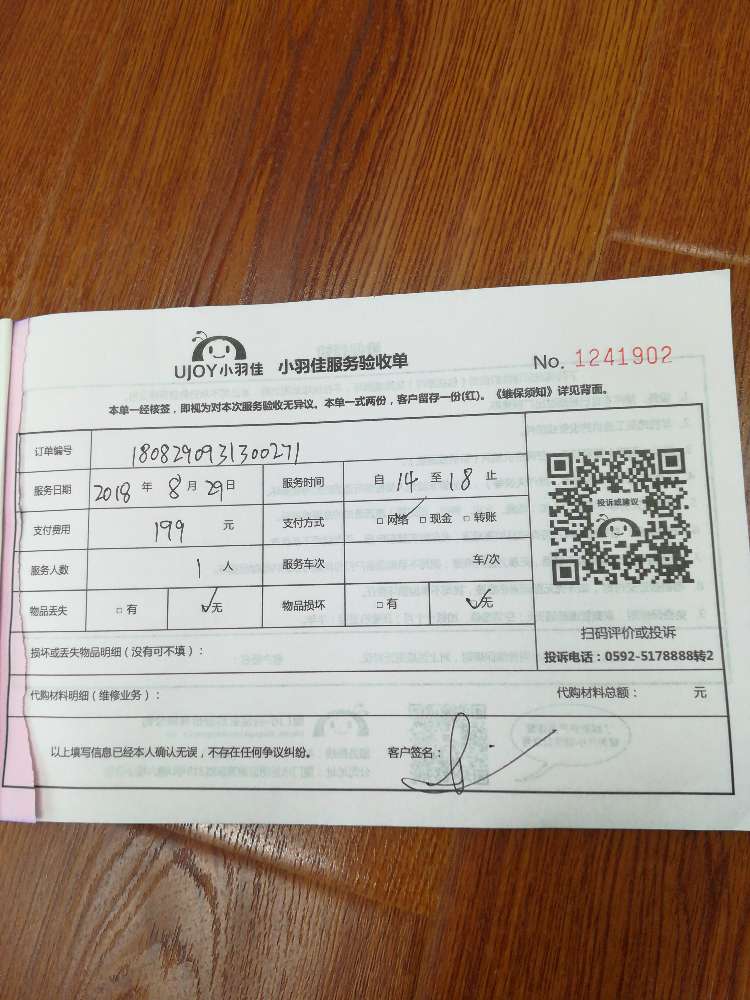 UJOY小羽佳 小羽佳服务验收单 No. 1241902
本单一经核签，即视为对本次服务验收无异议。本单一式两份，客户留存一份(红)。《维保须知》详见背面。
订单编号 1808290931300271
服务日期 2018 年 8 月 29 日 服务时间 自 14 至 18 止
支付费用 199 元 支付方式 □ 网络 □ 现金 □ 转账
服务人数 1 人 服务车次 车/次
物品丢失 □ 有 □ 无 物品损坏 □ 有 □ 无
投诉或建议
扫码评价或投诉
投诉电话：0592-5178888转2
损坏或丢失物品明细（没有可不填）：
代购材料明细（维修业务）： 代购材料总额： 元
以上填写信息已经本人确认无误，不存在任何争议纠纷。 客户签名：